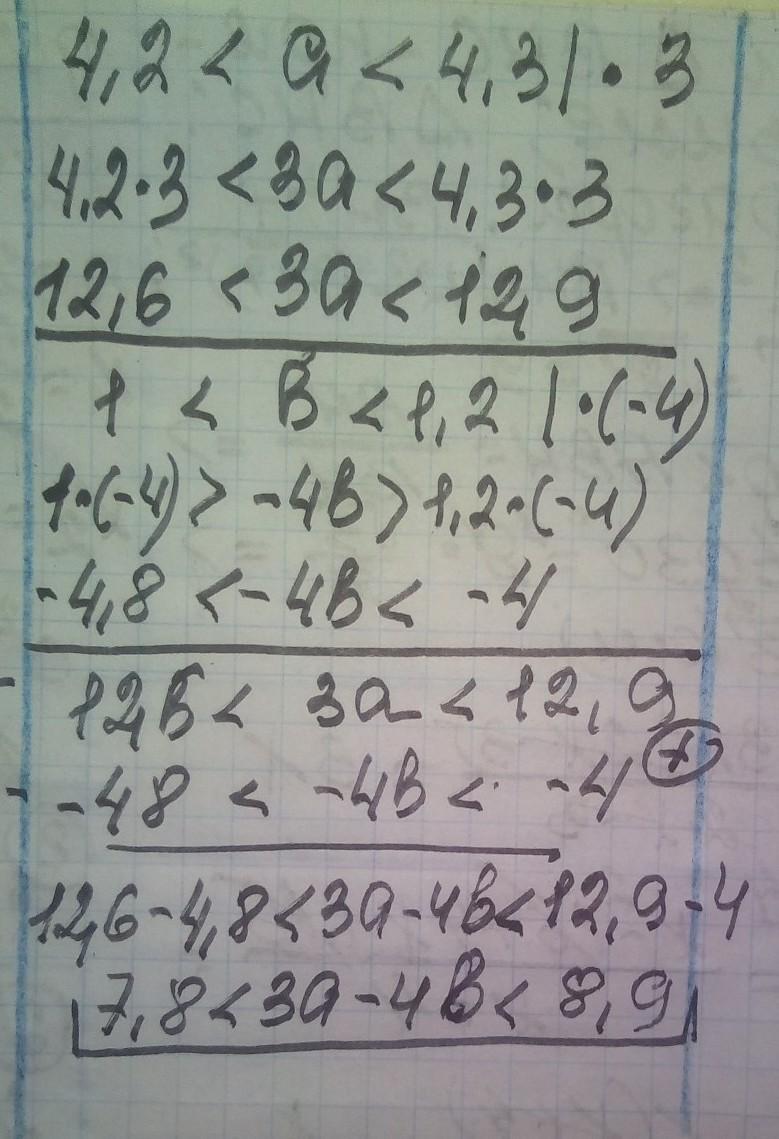 4,2 < a < 4,3 | · 3
4,2·3 < 3a < 4,3·3
12,6 < 3a < 12,9
1 < b < 1,2 | ·(-4)
1·(-4) > -4b > 1,2·(-4)
-4,8 < -4b < -4
12,6 < 3a < 12,9
+
-4,8 < -4b < -4
12,6-4,8 < 3a-4b < 12,9-4
7,8 < 3a-4b < 8,9